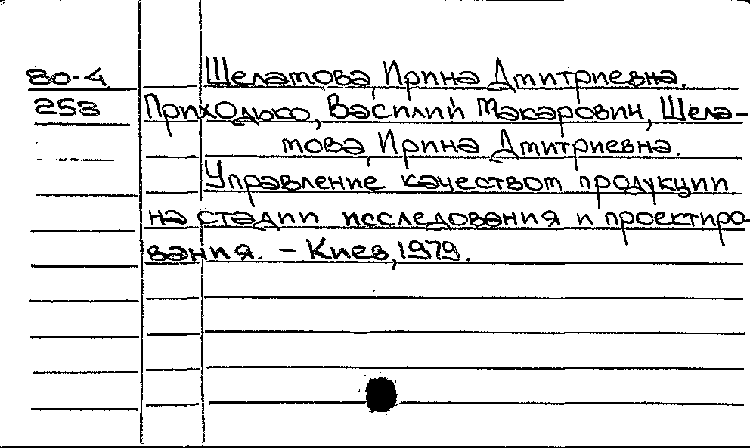 80-4 Шелатова, Ирина Дмитриевна.
253 Приходько, Василий Макарович, Шела-
това, Ирина Дмитриевна.
Управление качеством продукции
на стадии исследования и проектиро-
вания. – Киев, 1979.